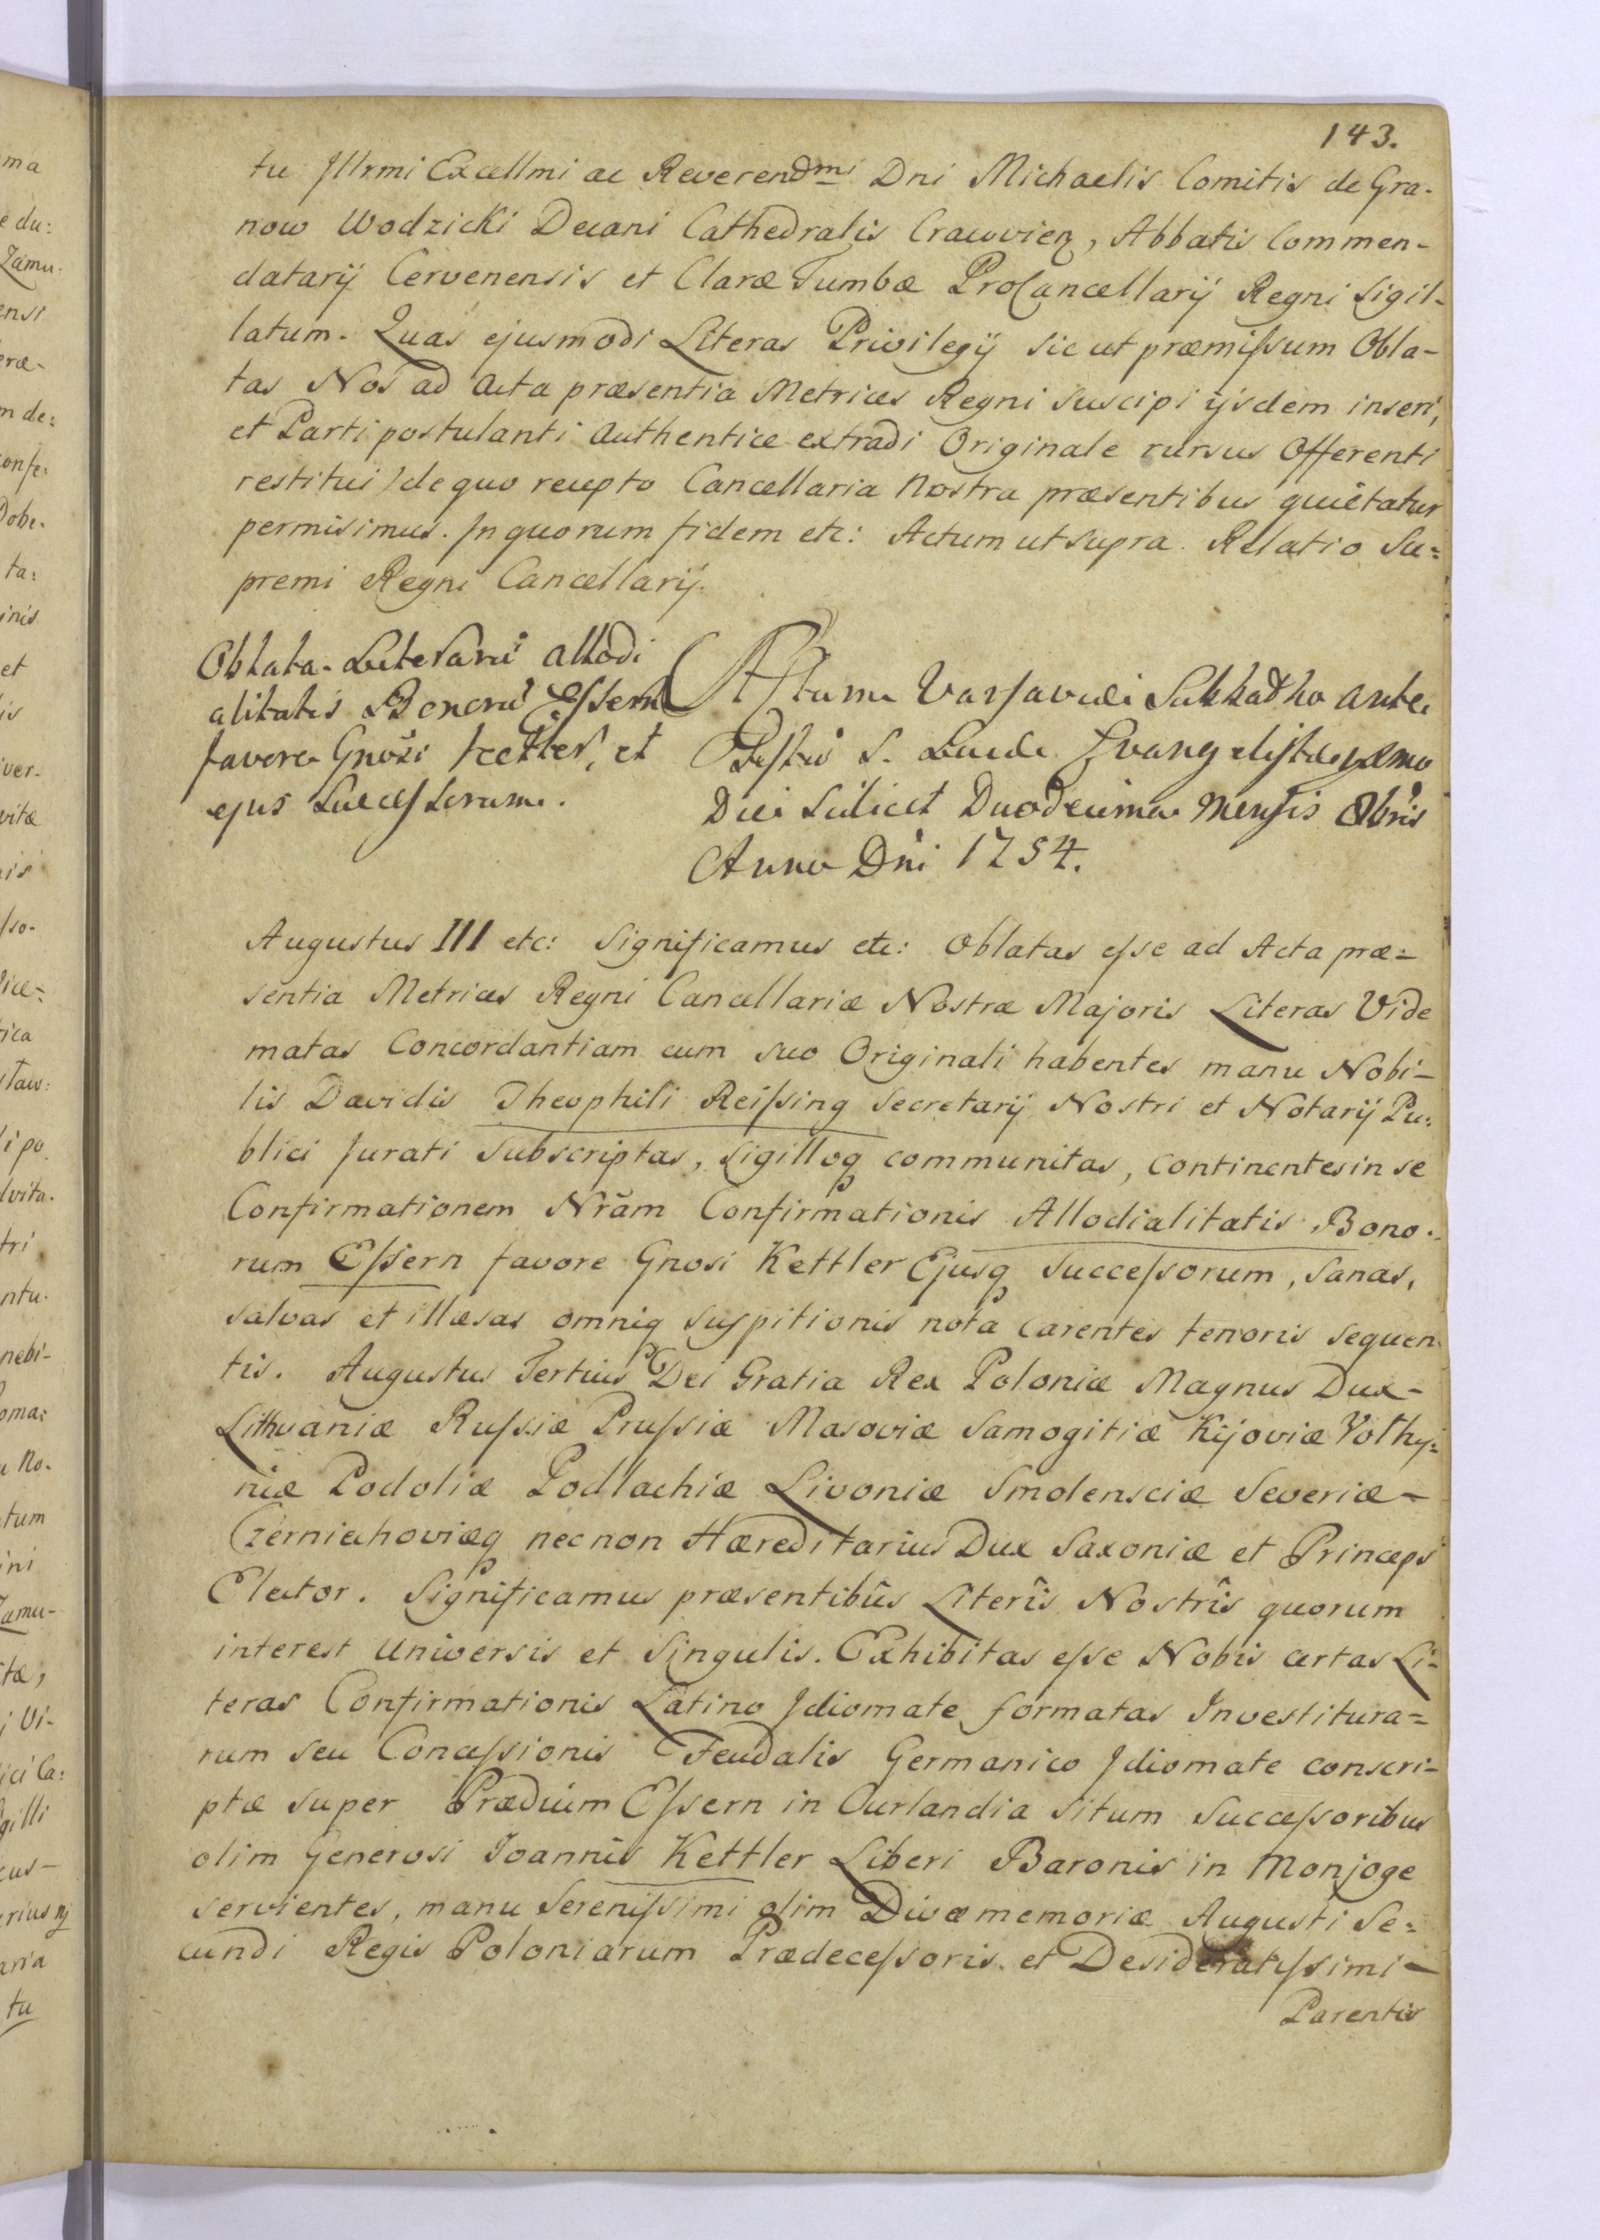 143.
tu Jllrmi Excellmi ac Reverendmi Dni Michaelis Comitis de Gra-
now Wodzicki Decani Cathedralis Cracovien, Abbatis Commen-
datarij Cervenensis et Claræ Tumbæ ProCancellarij Regni Sigil-
latum. Quas ejusmodi Literas Privilegij sic ut præmissum Obla-
tas Nos ad Acta præsentia Metrices Regni suscipi ijsdem inseri,
et Parti postulanti Authentice extradi Originale rursus Offerenti
restitui /de quo recepto Cancellaria Nostra præsentibus quietatur
permisimus. Jn quorum fidem etc: Actum ut supra. Relatio Su=
premi Regni Cancellarij.
Oblata Literarũ Allodi
alitatis Bonorũ Essern
favore Gnosi Kettler, et
ejus Successorum.
Actum Varsaviæ Sabbatho ante
Festũ S. Lucæ Evangelistæ
Die Scilicet Duodecima Mensis Obris
Anno Dni 1754.
Augustus III etc: Significamus etc: Oblatas esse ad Acta præ=
sentia Metrices Regni Cancellariæ Nostræ Majoris Literas Vide
matas Concordantiam cum suo Originali habentes manu Nobi-
lis Davidis Theophili Reissing Secretarij Nostri et Notarij Pu:
blici Jurati subscriptas, Sigilloq communitas, continentes in se
Confirmationem Nrãm Confirmationis Allodialitatis Bono:
rum Essern favore Gnosi Kettler Ejusq Successorum, sanas,
salvas et illæsas omniq suspitionis nota carentes tenoris sequen
tis. Augustus Tertius Dei Gratia Rex Poloniæ Magnus Dux-
Lithvaniæ Russiæ Prussiæ Masoviæ Samogitiæ Kijoviæ Volhy=
niæ Podoliæ Podlachiæ Livoniæ Smolensciæ Severiæ-
Czerniechoviæq necnon Hæreditarius Dux Saxoniæ et Princeps
Elector. Significamus præsentibûs Literîs Nostrîs quorum
interest Universis et Singulis. Exhibitas esse Nobis certas Li-
teras Confirmationis Latino Jdiomate formatas Investitura=
rum seu Concessionis Feudalis Germanico Jdiomate conscri-
ptæ super Prædium Essern in Curlandia situm Successoribus
olim Generosi Joannis Kettler Liberi Baronis in Monjoge
servientes, manu Serenissimi olim Divæ memoriæ Augusti Se=
cundi Regis Poloniarum Prædecessoris et Desideratissimi-
Parentis